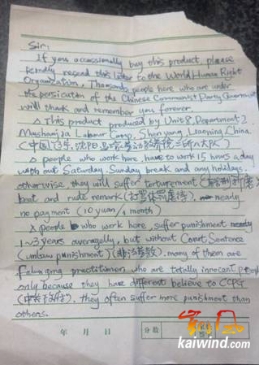 Sir:
If you occassionally buy this product, please
kindly resend this letter to the World Human Right
Organization. Thousands people here who are under
the persicution of the Chinese Communist Party Government
will thank and remember you forever.
This product produced by Unit 8, Department 2
Masanjia Labour Camp, Shenyang, Liaoning, China
people who work here, have to work 15 hours a day
without Saturday Sunday break and any holidays,
otherwise they will suffer torturement
beat and rude remark nearly
no payment (10 yuan/1 month)
people who work here suffer punishment nearly
1~3 years averagelly, but without Court Sentence
(unlaw punishment) many of them are
Falun gong practitioner who are totally innocent people
only because they have different believe to CCPG
they often suffer more punishment than
others.
年 月 日
kaiwind.com